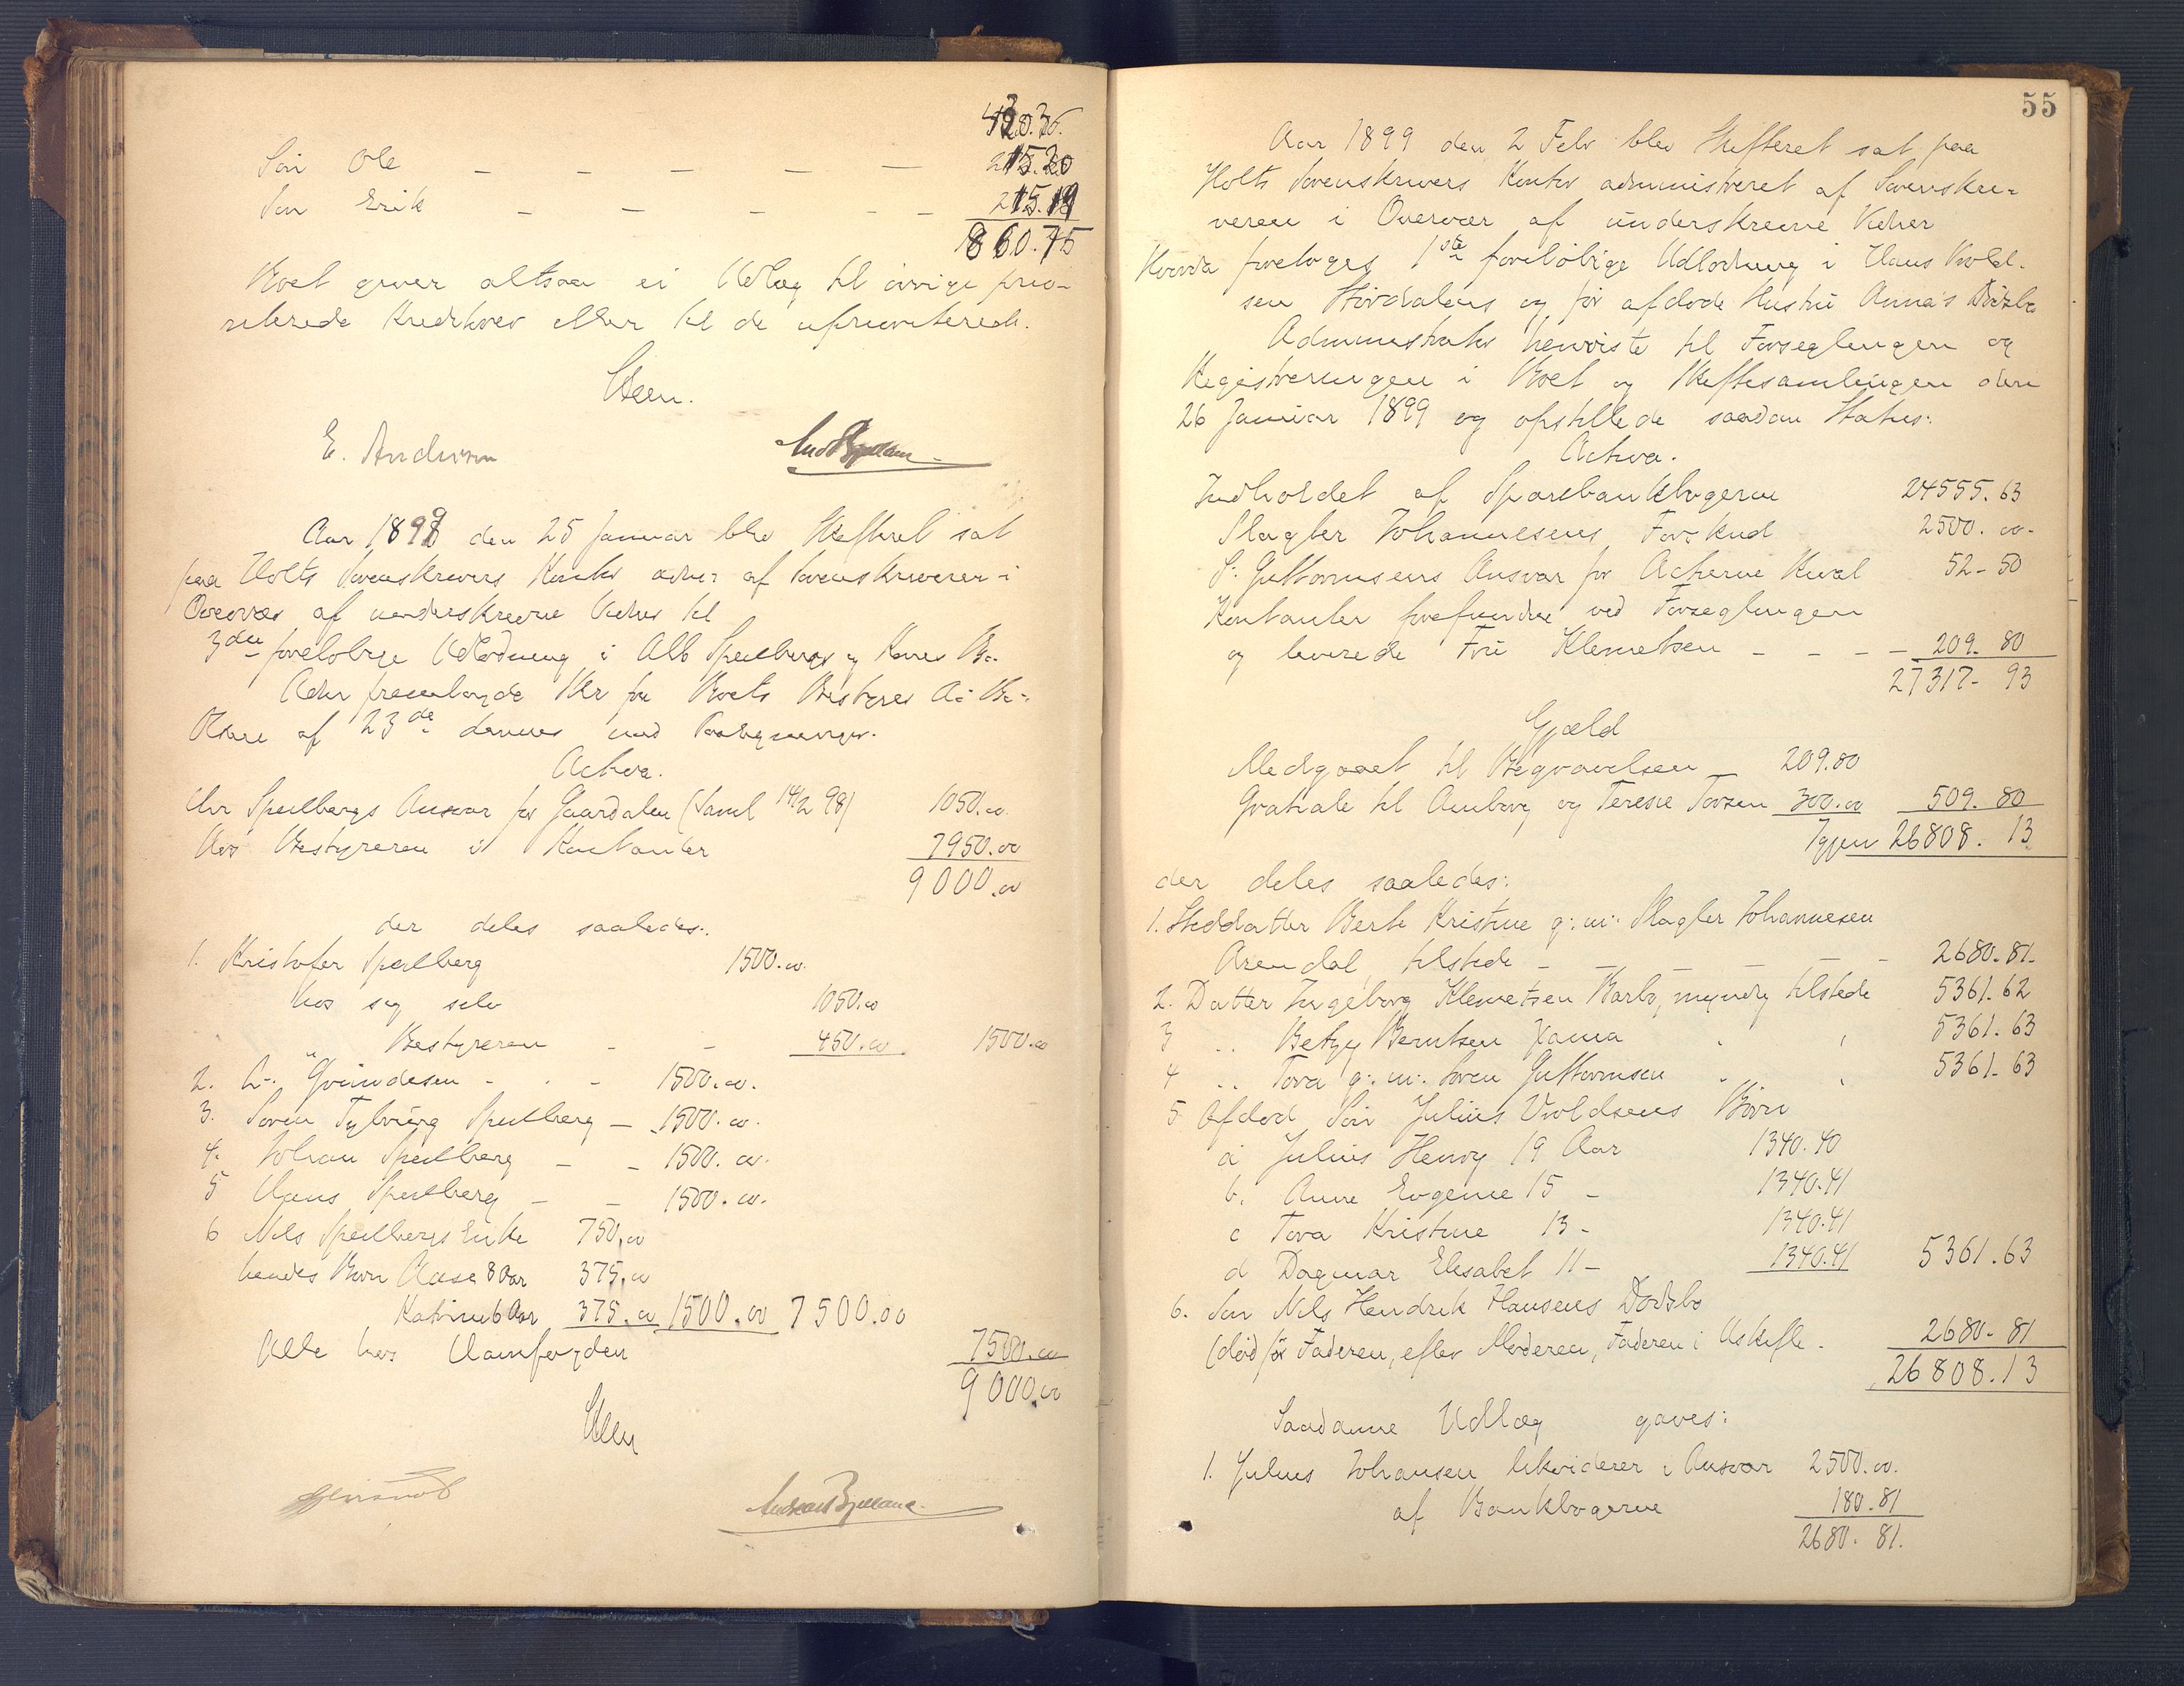 430.36.
Søn Ole – – – – – 215.20
Søn Erik – – – – – 215.19
860.75
Boet giver altsaa ei Udlæg til øvrige prio-
riterede Kreditorer eller til de uprioriterede.
Steen.
E. Anderson
Aar 1899 den 25 Januar blev Skifteret sat
paa Holts Sorenskrivers Kontor adm: af Sorenskriveren i
Overvær af underskrevne Vidner til
3die foreløbige Udlodning i Alb Speilbergs og Kones Bo.
Adm fremlagde fra Boets Bestyrer
af 23de dennes med
Activa.
Chr Speilbergs Ansvar for Gaardalen (Saml 14/2 98) 1050.00
Hos Bestyreren i Kontanter 7950.00
9000.00
der deles saaledes:
1. Kristofer Speilberg 1500.00.
hos sig selv 1050.00
" Bestyreren – – 450.00. 1500.00
2. Gundesen - . - 1500.00.
3. Søren Speilberg – 1500.00.
4. Johan Speilberg – – 1500.00.
5 Hans Speilberg – – 1500.00.
6 Nils Speilbergs Enke 750.00
hendes Børn Aase 8 Aar 375.00
Katrine 6 Aar 375.00 1500.00 7500.00
Alle hos 7500.00
9000.00
Steen
55
Aar 1899 den 2 Febr blev Skifteret sat paa
Holts Sorenskrivers Kontor administreret af Sorenskri-
veren i Overvær af underskrevne Vidner
Hvorda foretoges 1ste foreløbige Udlodning i Hans Vrold-
sen Stordalens og før afdøde Hustru Anna's Dødsbo
Administrator henviste til Forseglingen og
Registreringen i Boet og Skiftesamlingen den
26 Januar 1899 og opstillede saadan Status:
Activa.
Indholdet af Sparebankbøgerne 24555.63
Slagter Johannesens Forskud 2500.00-
S: Guttormsens Ansvar for 52-50
Kontanter forefundne ved Forseglingen
og leverede Fru Klemetsen – – – – 209.80
27317-93
Gjæld
Medgaaet til Begravelsen – 209.80
Gratiale til Amborg og Terese Torsen 300.00 509.80
Igjen 26808.13
der deles saaledes:
1. Steddatter Berte Kristine g: m: Slagter Johannesen
Arendal, tilstede – – – – – 2680.81-
2. Datter Ingeborg Klemetsen Barbo, myndig tilstede 5361.62
3 .. Betzy Berntsen 5361.63
4 .. Tora g: m: Søren Guttormsen 5361-63
5. Afdød Søn Julius Vroldsens Børn
a Julius Henry 19 Aar 1340.40
b. Anne Eugenie 15 – 1340.41
c Tora Kristine 13 – 1340.41
d Dagmar Elisabet 11 – 1340.41 5361.63
6. Søn Nils Hendrik Hansens Dødsbo
(død før Faderen, efter Moderen, Faderen i Uskifte. 2680-81
26808.13
Saadanne Udlæg gaves:
1. Julius Johansen likviderer i Ansvar 2500.00.
af Bankbøgerne 180.81
2680.81.